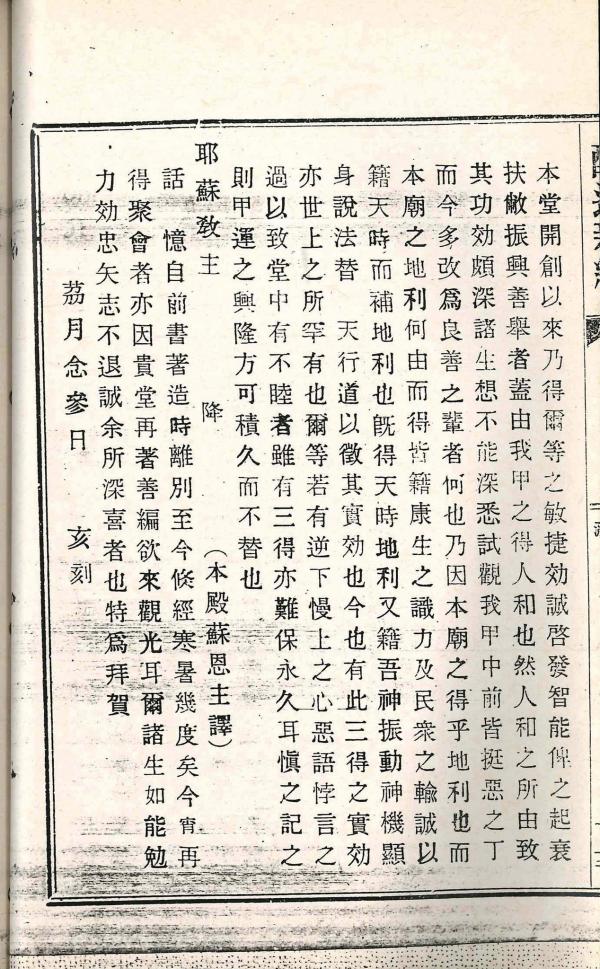 本堂開創以來乃得爾等之敏捷効誠啓發智能俾之起衰
扶敝振興善舉者蓋由我甲之得人和也然人和之所由致
其功効頗深諸生想不能深悉試觀我甲中前皆挺惡之丁
而今多改爲良善之輩者何也乃因本廟之得乎地利也而
本廟之地利何由而得皆籍康生之識力及民衆之輸誠以
籍天時而補地利也旣得天時地利又籍吾神振動神機顯
身說法替　天行道以徵其實効也今也有此三得之實効
亦世上之所罕有也爾等若有逆下慢上之心惡語悖言之
過以致堂中有不睦者雖有三得亦難保永久耳愼之記之
則甲運之興隆方可積久而不替也
耶蘇敎主　降　（本殿蘇恩主譯）
話　憶自前書著造時離別至今倏經寒暑幾度矣今宵再
得聚會者亦因貴堂再著善編欲來觀光耳爾諸生如能勉
力効忠矢志不退誠余所深喜者也特爲拜賀
茘月念參日　亥刻